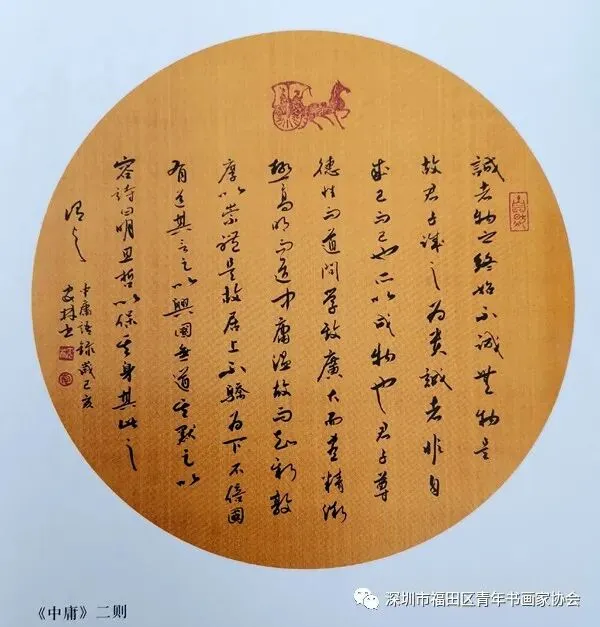 誠者物之終始不誠無物是
故君子誠之為贵誠者非自
成己而已也所以成物也君子尊
德性而道問學致廣大而盡精微
極高明而道中庸温故而知新敦
厚以崇禮是故居上不驕為下不倍國
有道其言足以興國無道其默足以
容詩曰明且哲以保其身其此之
謂與
中庸語録歲己亥
《中庸》二则
深圳市福田区青年书画家协会